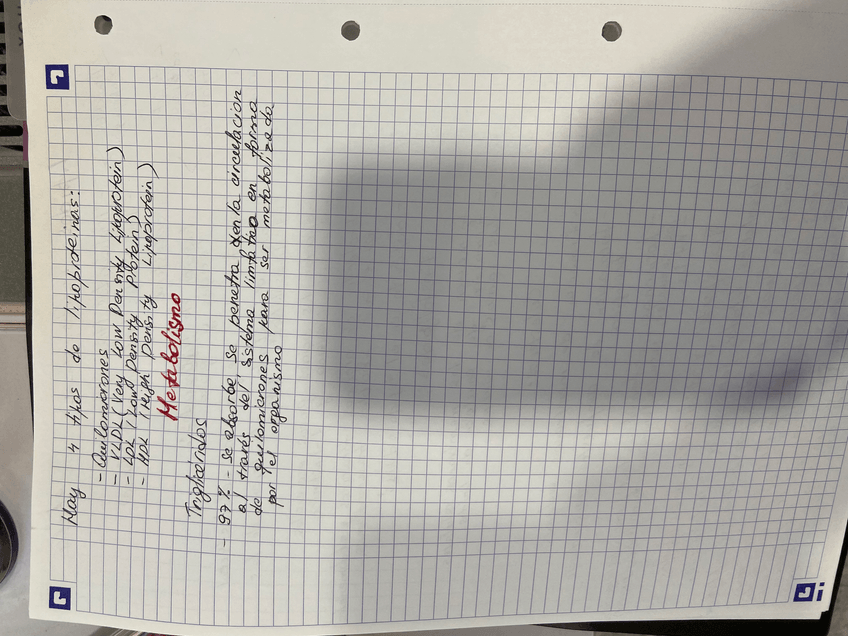 Hay 4 tipos de lipoproteinas:
- Quilomicrones
- VLDL (Very Low Density Lipoprotein)
- LDL (Low Density Protein)
- HDL (Heigh Density Lipoprotein)
Metabolismo
Triglicéridos
- 97% - se absorbe, se penetra en la circulación
al través del sistema linfático en forma
de quilomicrones para ser metabolizado
por el organismo